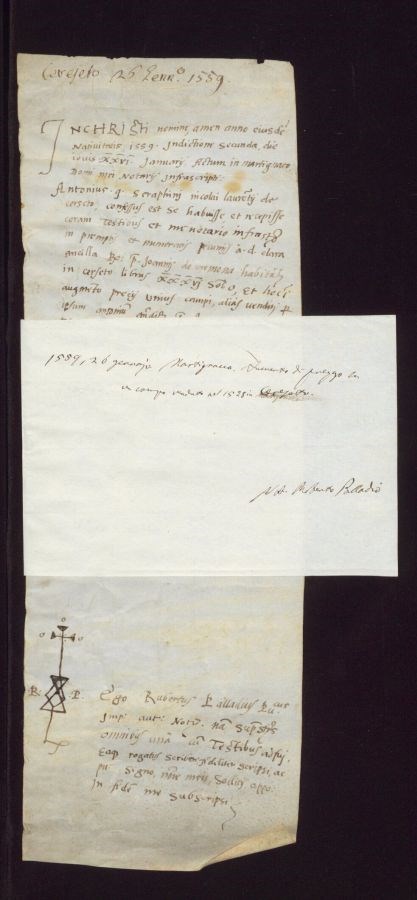 Cereseto 26 Genn.o 1559.
IN CHRISTI nomine, amen anno eiusdē
Nativitatis 1559. Indictione Secunda, die
XXVI. Januarij Actum in martignaco
domi mei Notarij infrascripti.
Antonius q. Seraphini nicolai laurētij de
cerseto, confessus est se habuisse, et recepisse
coram Testibus et me notario infrascto
in promptis et numeratis pecunijs à d. clara
ancilla p. Joannis de cremona habitāt.
in cerseto libras XXXVJ Sol. 0, et hoc
augmēto precij unius campi, alias venditi p
ipsum antonium
1559, 26 gennajo Martignacco. Aumento di prezzo di
un campo venduto nel 1525 in Cereseto.
Not. Roberto Palladio
R. P.
Ego Rubertus Palladius
Imp. aut. Not. Supstis
omnibus unà cū Testibus adfui,
Eaq rogatus scribere fideliter scripsi, ac
Signo, nōīe meis, Solitis appo.
In fidē me Subscripsi